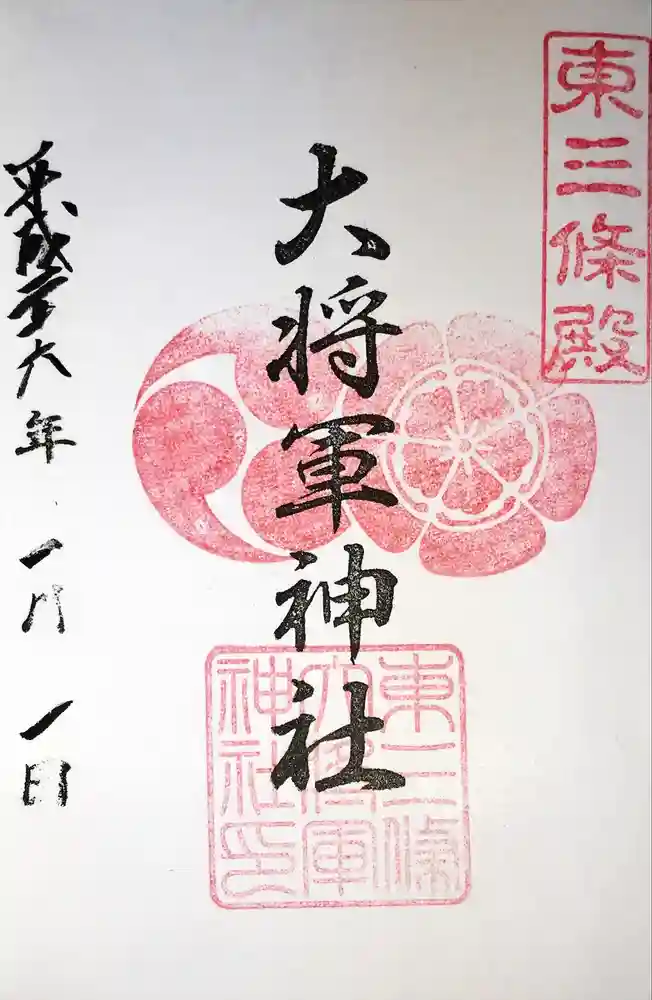 東三條殿
大将軍神社
東三條
大将軍
神社印
平成二十六年 一月 一日